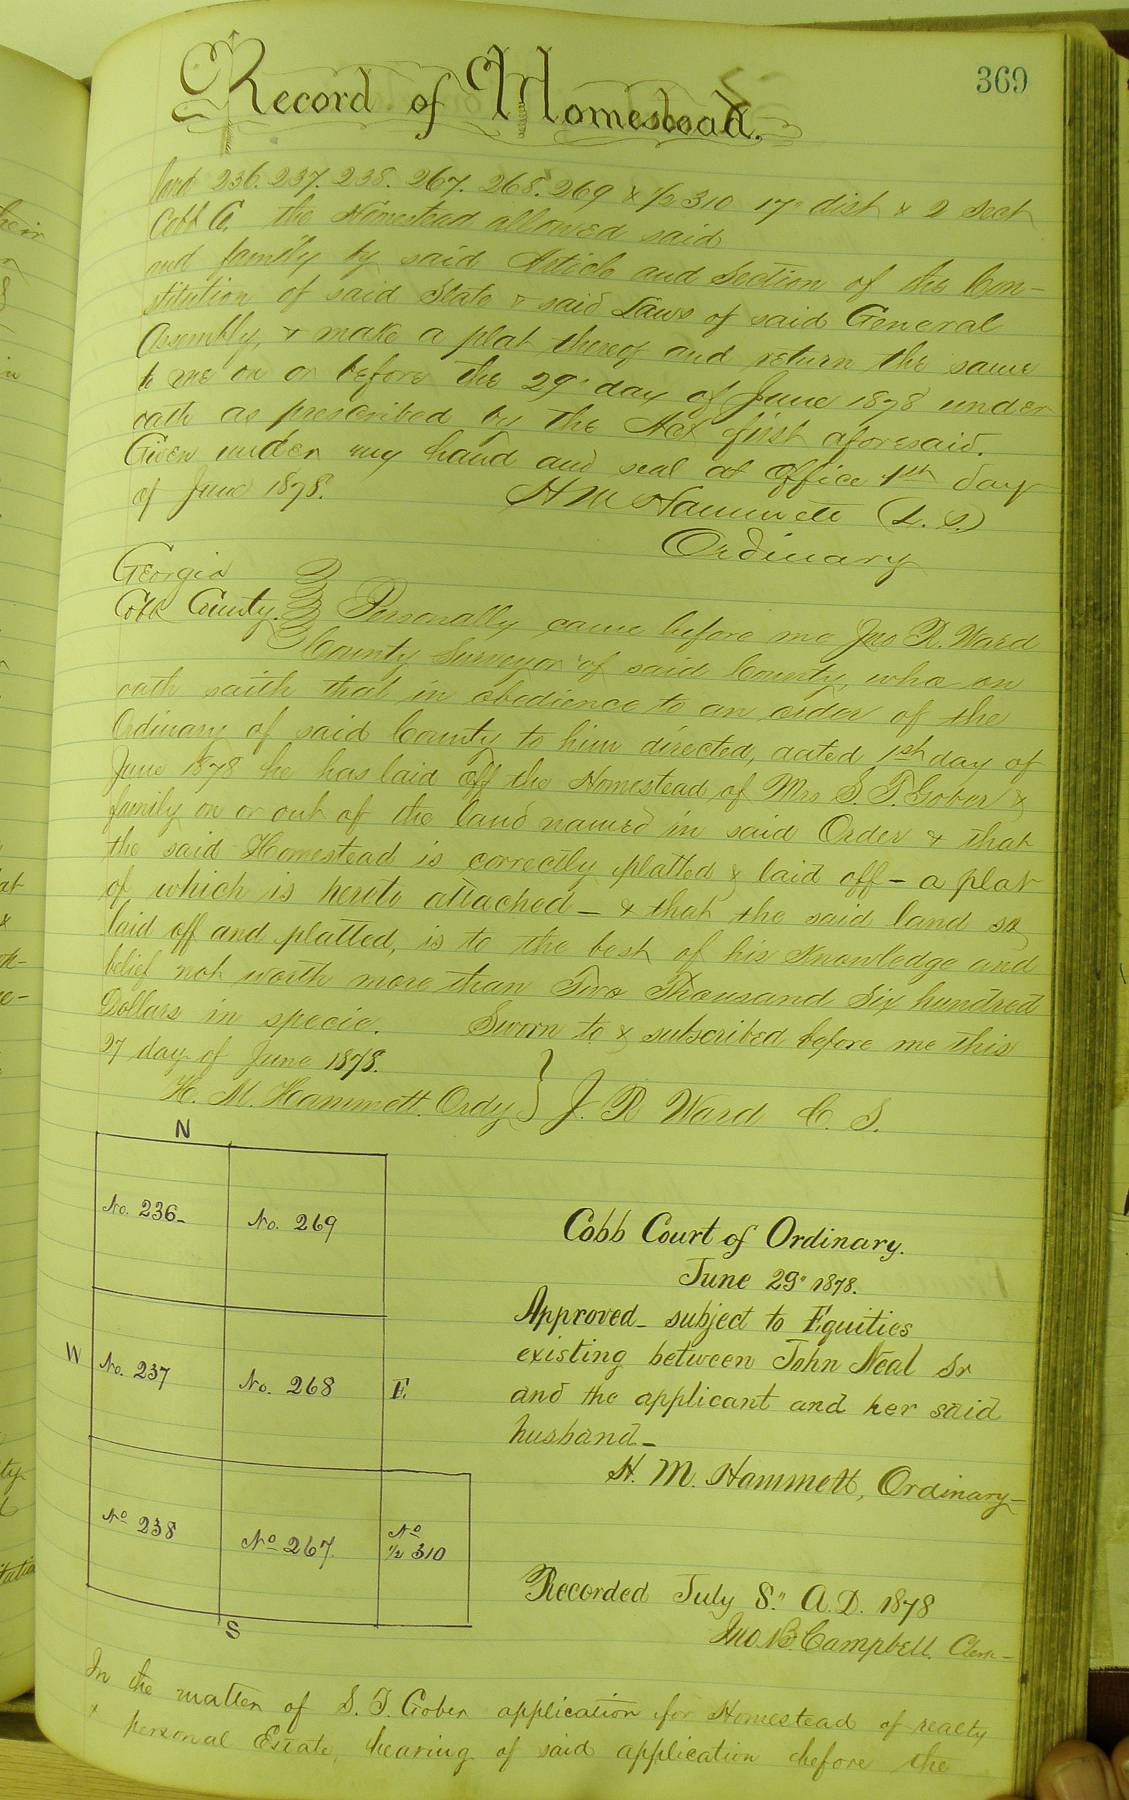 369
Record of Homestead.
land 236. 237. 238. 267. 268. 269 & 1/2 310 17" dist & 2 Sect
Cobb G. the Homestead allowed said
and family by said Article and Section of the Con-
stitution of said State & said Laws of said General
Assembly, & make a plat thereof and return the same
to me on or before the 29" day of June 1878 under
oath as prescribed by the Act first aforesaid.
Given under my hand and seal at office 1st day
of June 1878.
H M Hammett (L. S.)
Ordinary
Georgia
Cobb County. Personally came before me Jno R. Ward
County Surveyor of said County, who on
oath saith that in obedience to an order of the
Ordinary of said County to him directed, dated 1st day of
June 1878 he has laid off the Homestead of Mrs S. T. Gober &
family on or out of the land named in said Order & that
the said Homestead is correctly platted & laid off - a plat
of which is hereto attached - & that the said land so
laid off and platted, is to the best of his Knowledge and
belief not worth more than Two Thousand Six hundred
Dollars in specie. Sworn to & subscribed before me this
27 day of June 1878.
H. M. Hammett. Ordy } J. R Ward C. S.
N
No. 236-
No. 269
Cobb Court of Ordinary.
June 29" 1878.
Approved - subject to Equities
existing between John Neal Sr
and the applicant and her said
husband -
H. M. Hammett, Ordinary-
W
No. 237
No. 268
E.
No 238
No 267
No
1/2 310
S
Recorded July 8." A.D. 1878
Jno. B. Campbell. Clerk-
In the matter of S. T. Gober application for Homestead of realty
& personal Estate, hearing of said application before the